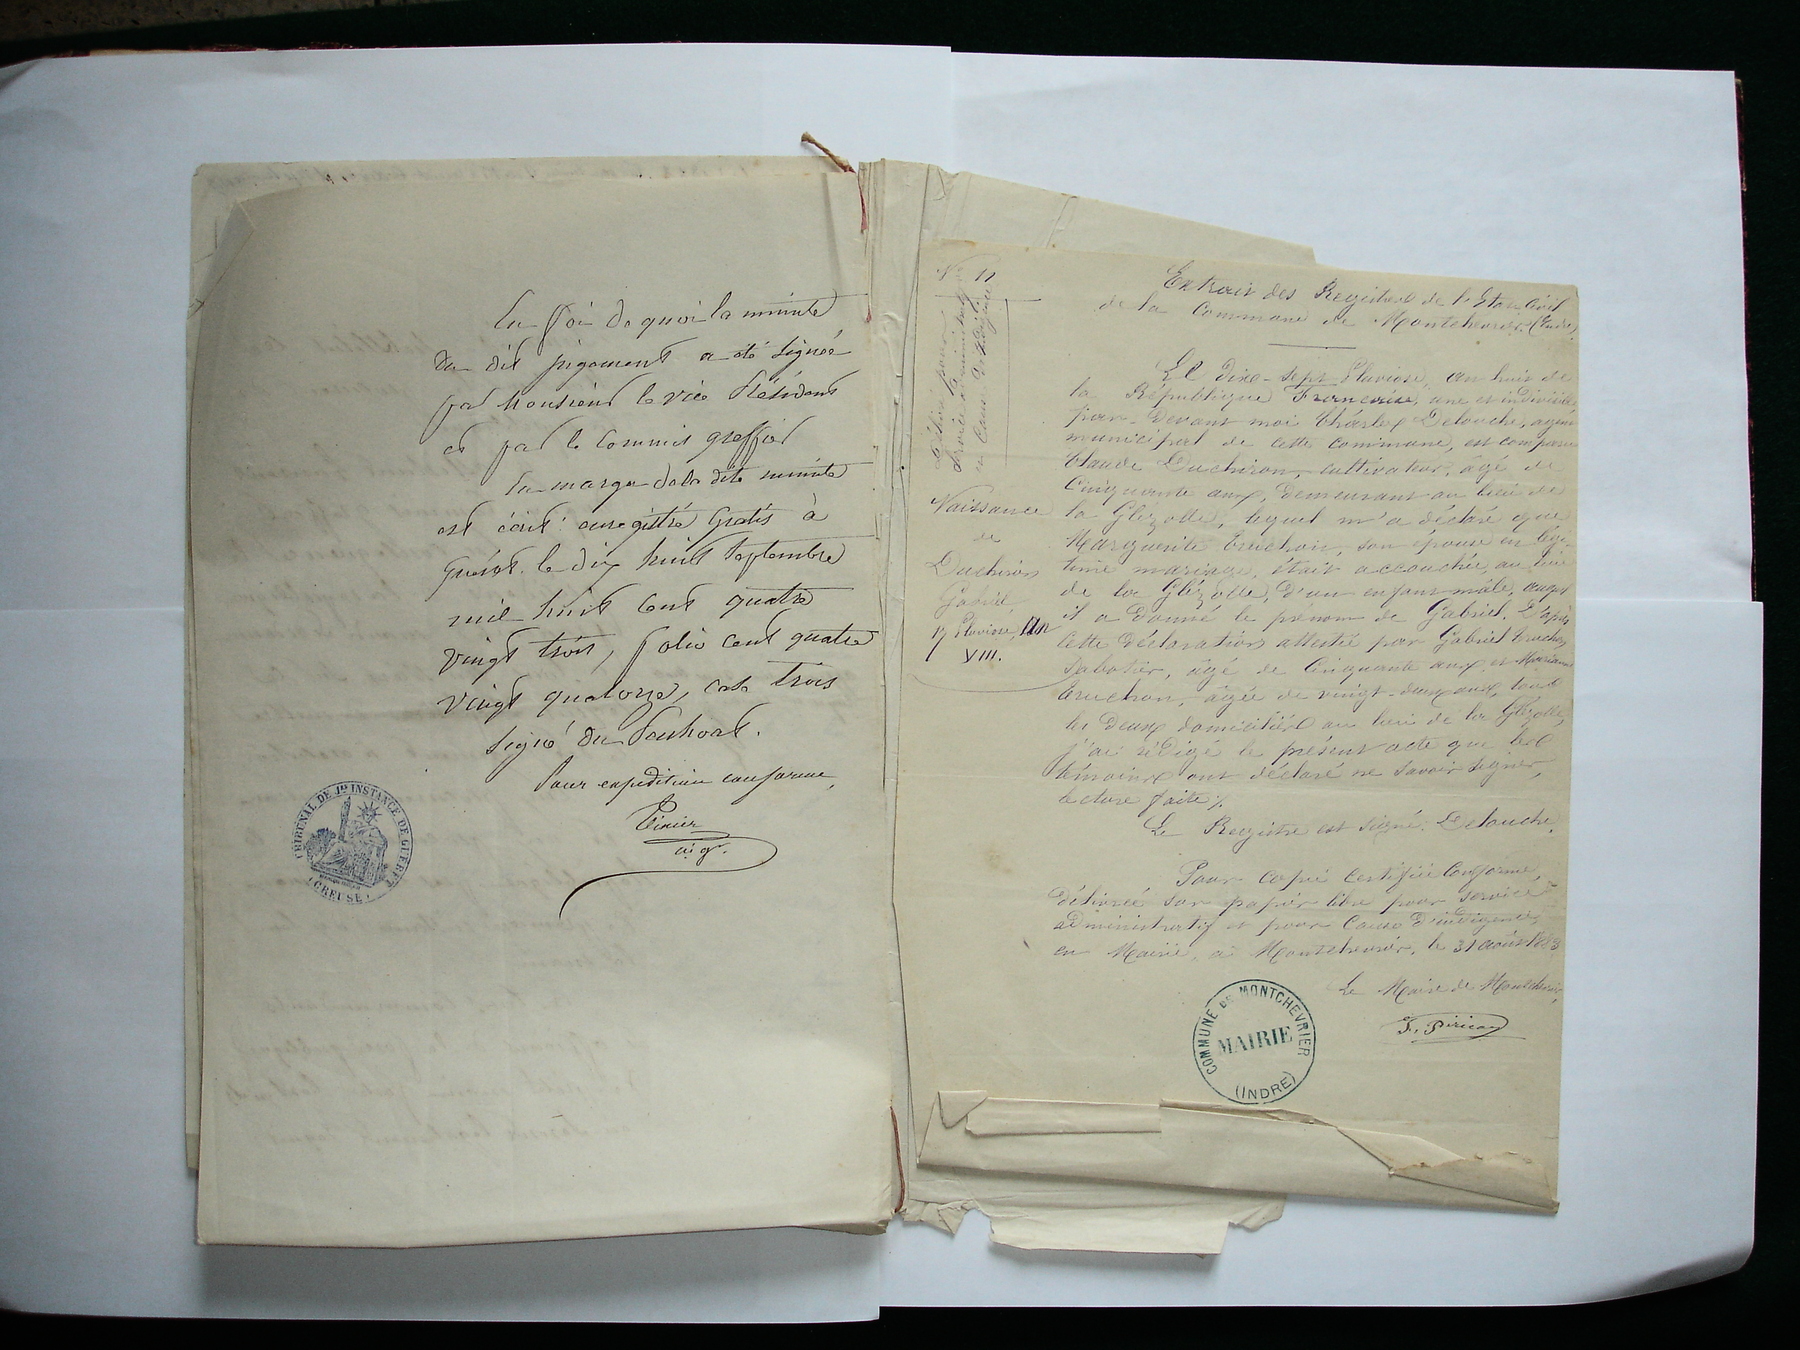 En foi de quoi la minute
du dit jugement a été signée
par Monsieur le vice Président
et par le Commis greffier
En marge de la dite minute
est écrit : enregistré Gratis à
Guéret le dix huit Septembre
mil huit cent quatre
vingt trois, folio cent quatre
vingt quatorze, case trois
Signé du
Pour expédition conforme,
TRIBUNAL DE Ire INSTANCE DE GUERET
(CREUSE)
N° 11
Délivré pour
Service administratif
et cause d'indigence
Naissance
de
Duchiron
Gabriel,
17 Pluviose, An
VIII.
Extrait des Registres de l'Etat Civil
de la Commune de Montchevrier (Indre)
Le dix-sept Pluviose, an huit de
la République Francaise, une et indivisible
par-devant moi Charles Delouche, agent
municipal de cette commune, est comparu
Claude Duchiron, cultivateur, âgé de
Cinquante ans, demeurant au lieu de
la Glézolle, lequel m'a déclaré que
Marguerite Truchon, son épouse en légi-
time mariage, était accouchée, au lieu
de la Glézolle, d'un enfant mâle, auquel
il a donné le prénom de Gabriel. D'après
cette déclaration attestée par Gabriel Truchon
Sabotier, âgé de Cinquante ans et Marianne
Truchon, âgée de vingt-deux ans, tous
les deux domiciliés au lieu de la Glézolle,
j'ai rédigé le présent acte que les
témoins ont déclaré ne savoir signer,
lecture faite ./.
Le Registre est signé : Delouche.
Pour copie Certifiée Conforme,
délivrée sur papier libre pour service
administratif et pour Cause d'indigence,
en Mairie, à Montchevrier, le 31 août 1883
Le Maire de Montchevrier,
COMMUNE DE MONTCHEVRIER
MAIRIE
(INDRE)